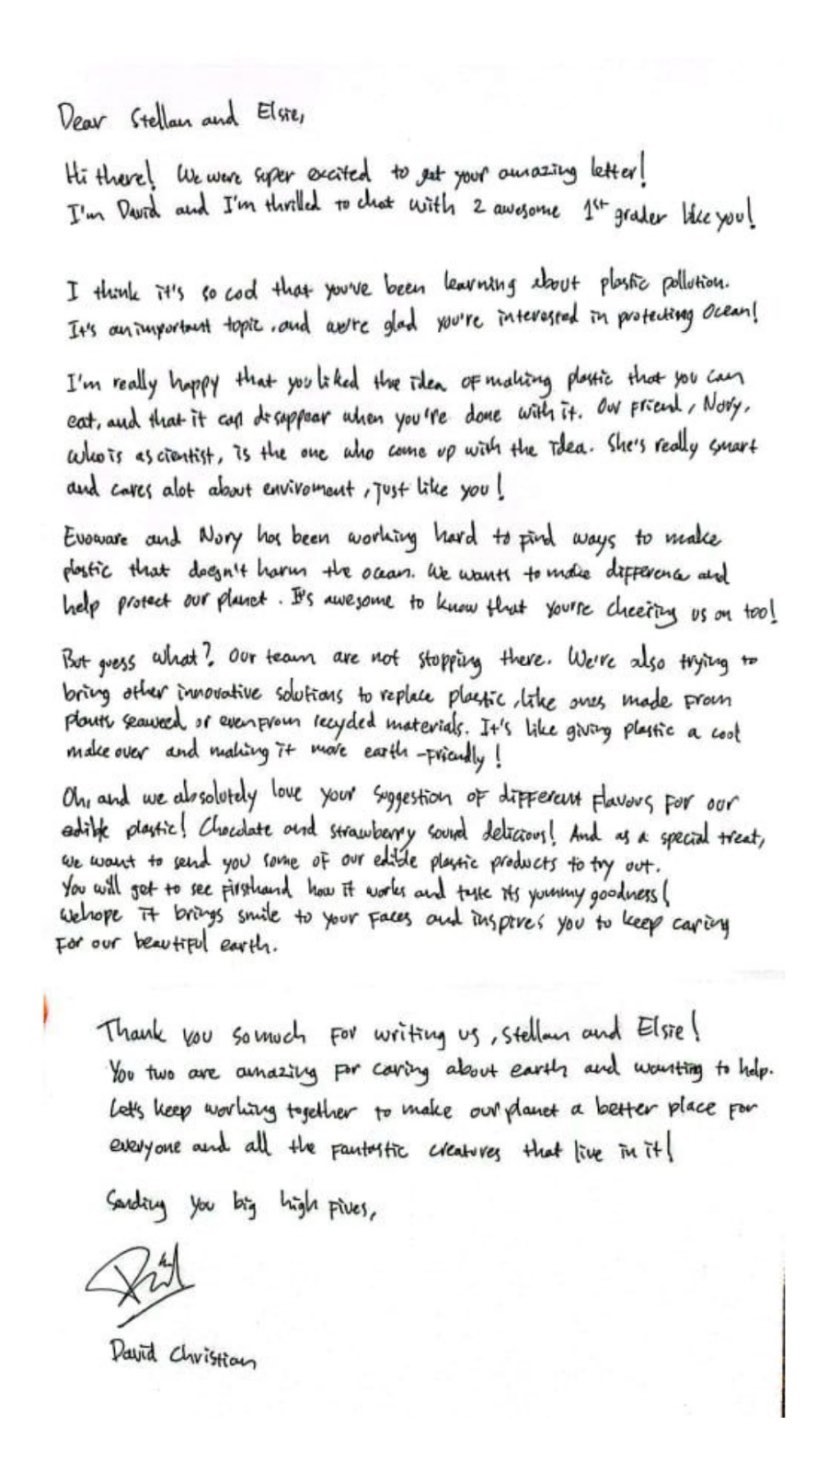 Dear Stellan and Elsie,
Hi there! We were super excited to get your amazing letter!
I'm David and I'm thrilled to chat with 2 awesome 1st grader like you!
I think it's so cool that you've been learning about plastic pollution.
It's an important topic, and we're glad you're interested in protecting Ocean!
I'm really happy that you liked the idea of making plastic that you can
eat, and that it can disappear when you're done with it. Our friend, Nory,
who is a scientist, is the one who came up with the idea. She's really smart
and cares alot about enviroment, just like you!
Evoware and Nory has been working hard to find ways to make
plastic that doesn't harm the ocean. We wants to make difference and
help protect our planet. It's awesome to know that you're cheering us on too!
But guess what? Our team are not stopping there. We're also trying to
bring other innovative solutions to replace plastic, like ones made from
plants seaweed or even from recycled materials. It's like giving plastic a cool
make over and making it more earth-friendly!
Oh, and we absolutely love your suggestion of different flavors for our
edible plastic! Chocolate and strawberry sound delicious! And as a special treat,
we want to send you some of our edible plastic products to try out.
You will get to see firsthand how it works and taste its yummy goodness!
We hope it brings smile to your faces and inspires you to keep caring
for our beautiful earth.
Thank you so much for writing us, Stellan and Elsie!
You two are amazing for caring about earth and wanting to help.
Let's keep working together to make our planet a better place for
everyone and all the fantastic creatures that live in it!
Sending you big high fives,
David Christian